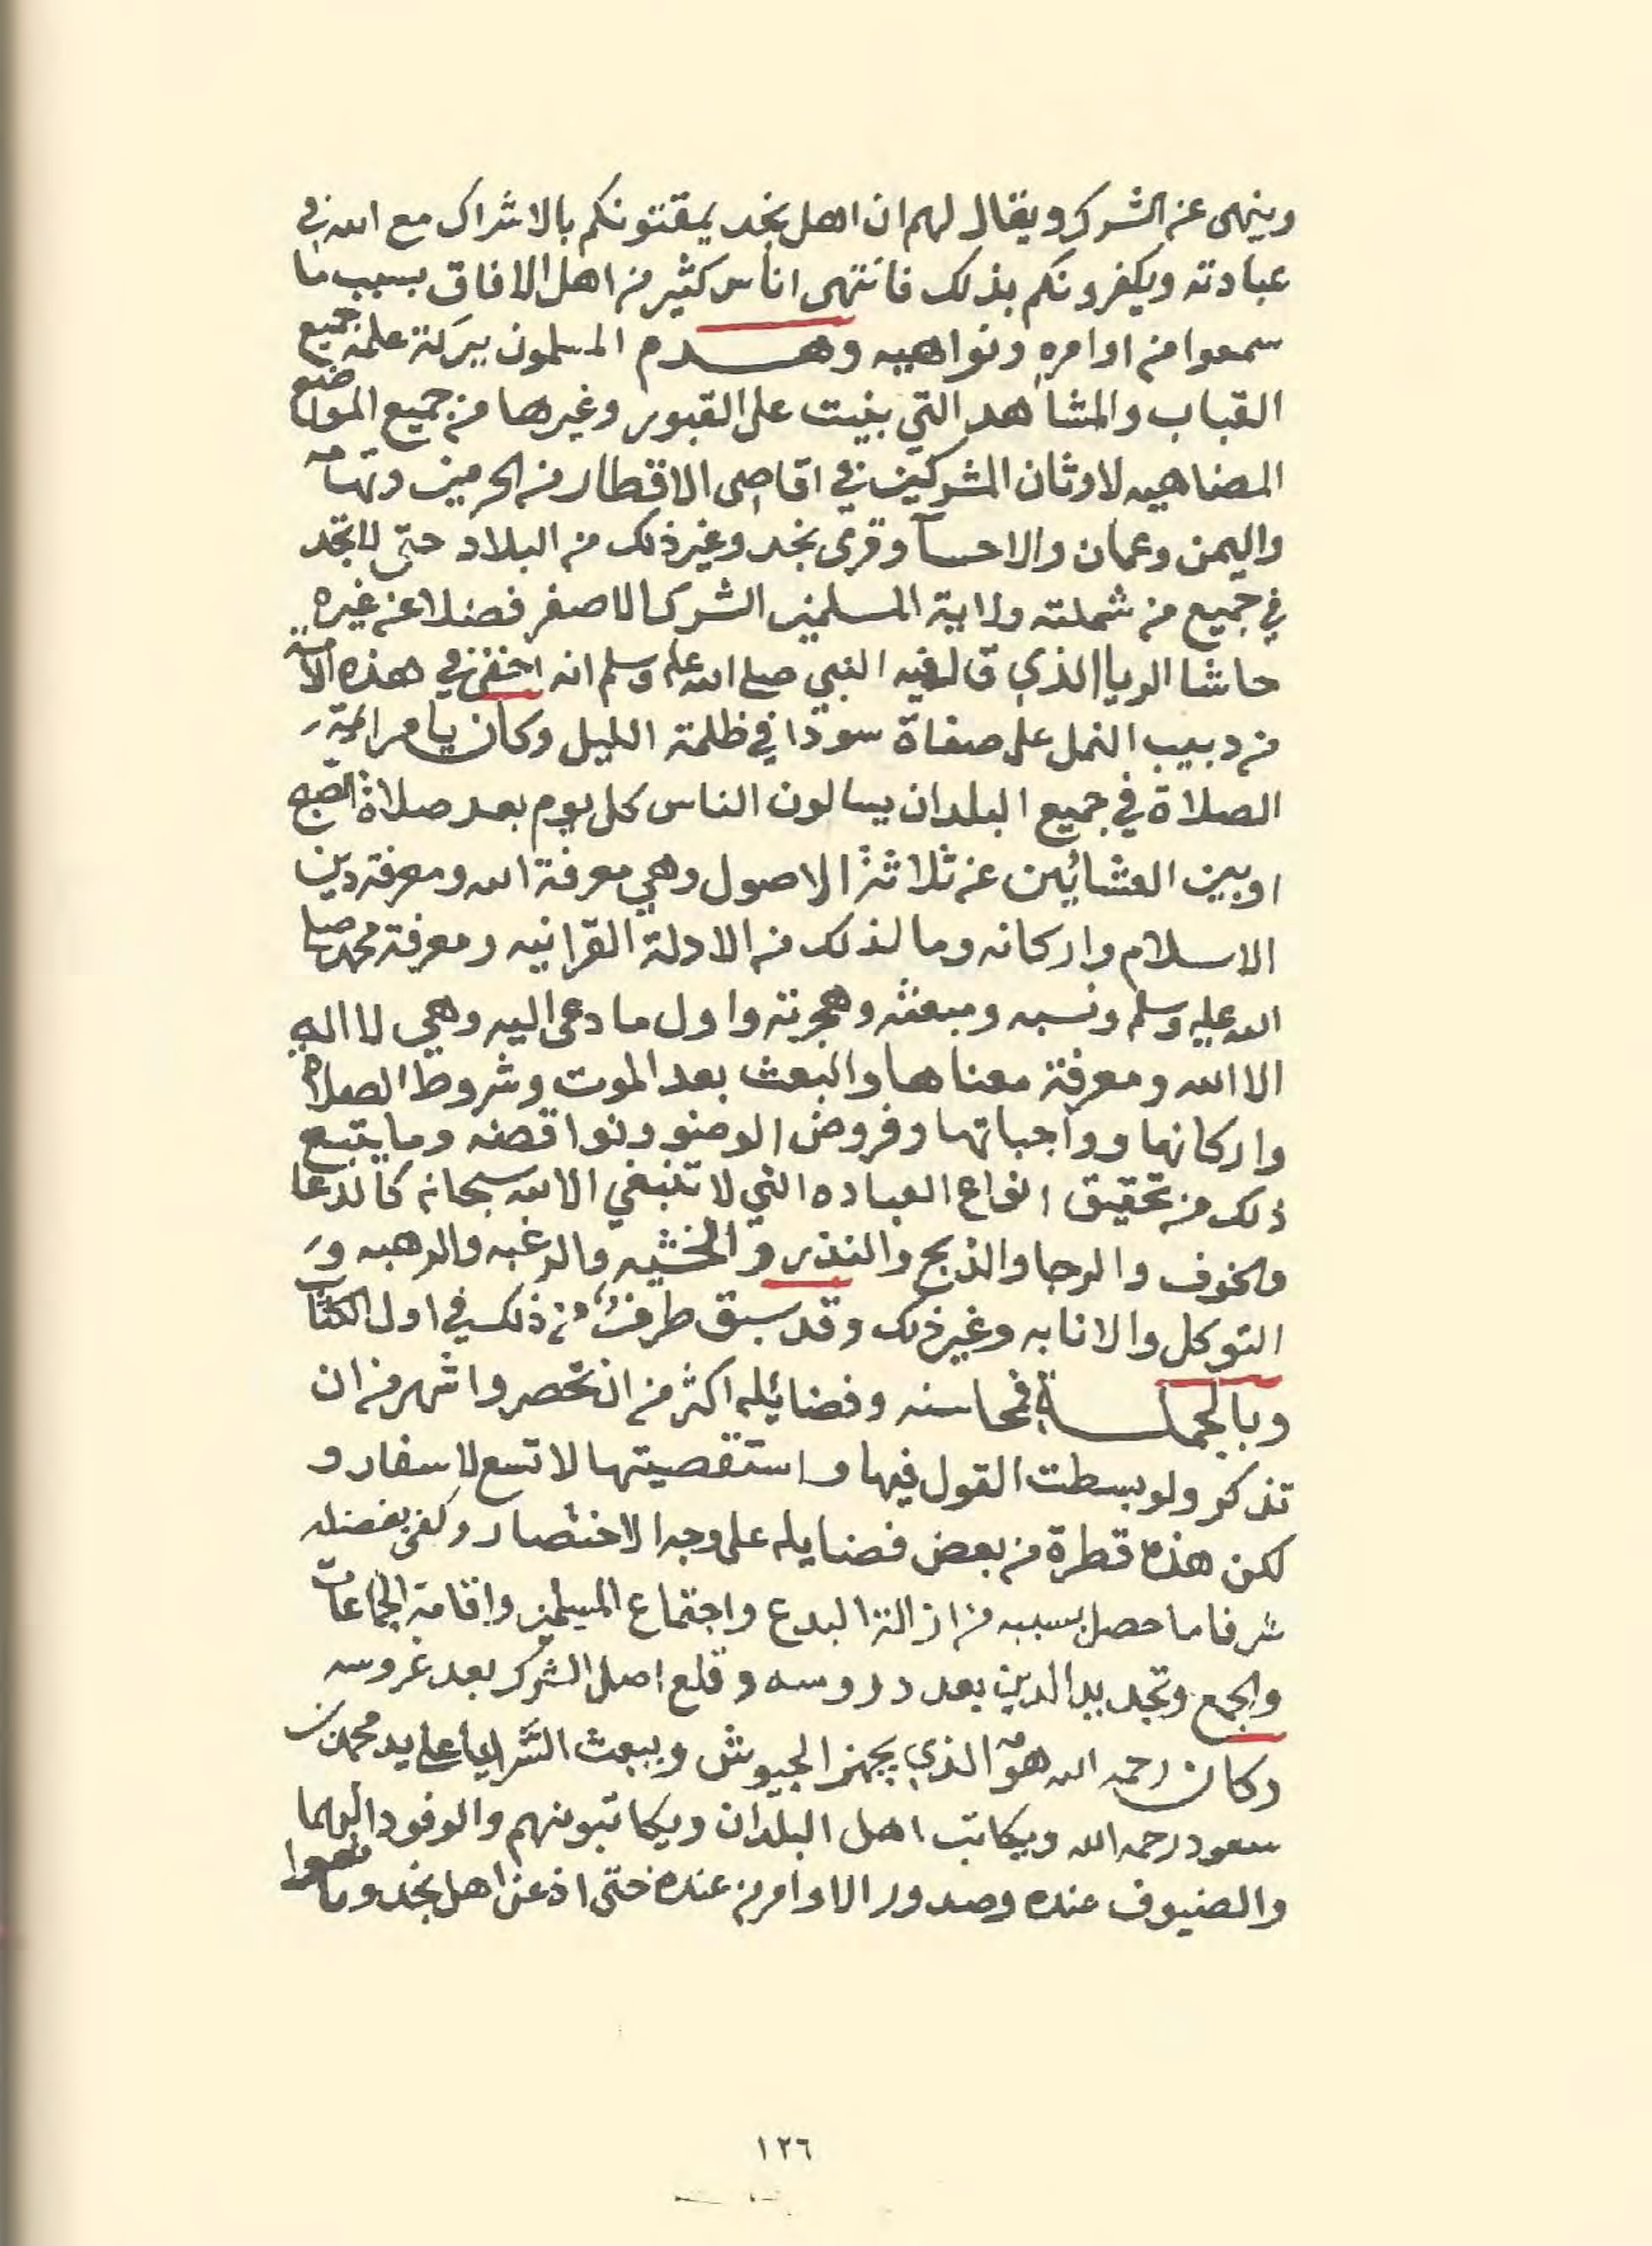 وينهى عن الشرك ويقال لهم ان اهل نجد يمقتونكم بالاشراك مع الله في
عبادته ويكفرونكم بذلك فانتهى اناس كثير من اهل الافاق بسبب ما
سمعوا من اوامره ونواهيه وهدم المسلمون ببركة علمه جميع
القباب والمشاهد التي بنيت على القبور وغيرها من جميع المواضع
المضاهيه لاوثان المشركين في اقاصى الاقطار من الحرمين وتهامه
واليمن وعمان والاحسآ وقرى نجد وغير ذلك من البلاد حتى لا تجد
في جميع من شملته ولاية المسلمين الشرك الاصغر فضلا عن غيره
حاشا الريا الذي قال فيه النبي صلى الله عليه وسلم انه اخفى في هذه الامة
من دبيب النمل على صفاة سودا في ظلمة الليل وكان يامر ائمة
الصلاة في جميع البلدان يسالون الناس كل يوم بعد صلاة الصبح
او بين العشائين عن ثلاثة الاصول وهي معرفة الله ومعرفة دين
الاسلام واركانه وما لذلك من الادلة القرانيه ومعرفة محمد صلى
الله عليه وسلم ونسبه ومبعثه وهجرته واول ما دعى اليه وهي لا اله
الا الله ومعرفة معناها والبعث بعد الموت وشروط الصلاة
واركانها وواجباتها وفروض الوضو ونواقضه وما يتبع
ذلك من تحقيق انواع العباده التي لا تنبغي الا لله سبحانه كالدعا
والخوف والرجا والذبح والنذر والخشيه والرغبه والرهبه و
التوكل والانابه وغير ذلك وقد سبق طرف من ذلك في اول الكتاب
وبالجملة فمحاسنه وفضائله اكثر من ان تحصر واشهر من ان
تذكر ولو بسطت القول فيها واستقصيتها لاتسع لاسفار و
لكن هذه قطرة من بعض فضايله على وجه الاختصار وكفى بفضله
شرفا ما حصل بسببه من ازالة البدع واجتماع المسلمين واقامة الجماعات
والجمع وتجديد الدين بعد دروسه وقلع اصل الشرك بعد غروسه
وكان رحمه الله هو الذي يجهز الجيوش ويبعث السرايا على يد محمد بن
سعود رحمه الله ويكاتب اهل البلدان ويكاتبونهم والوفود اليهما
والضيوف عنده وصدور الاوامر من عنده حتى اذعن اهل نجد
١٢٦